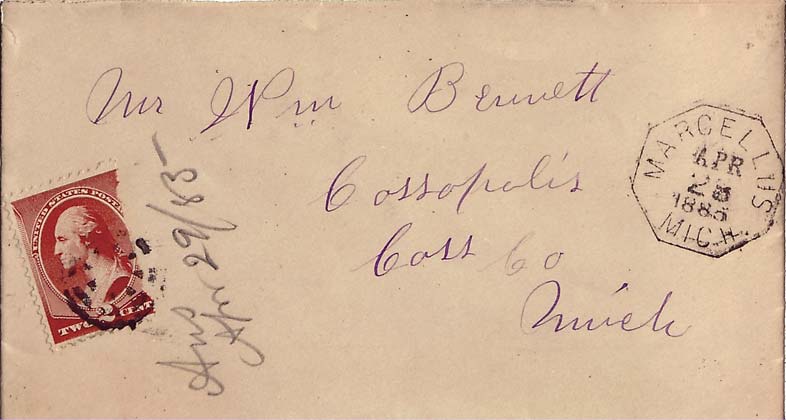 Mr Wm Bennett
Cassopolis
Cass Co
Mich
MARCELLUS
APR
1885
MICH.
UNITED STATES POSTAGE
TWO 2 CENTS
Ans
Apr 29/85